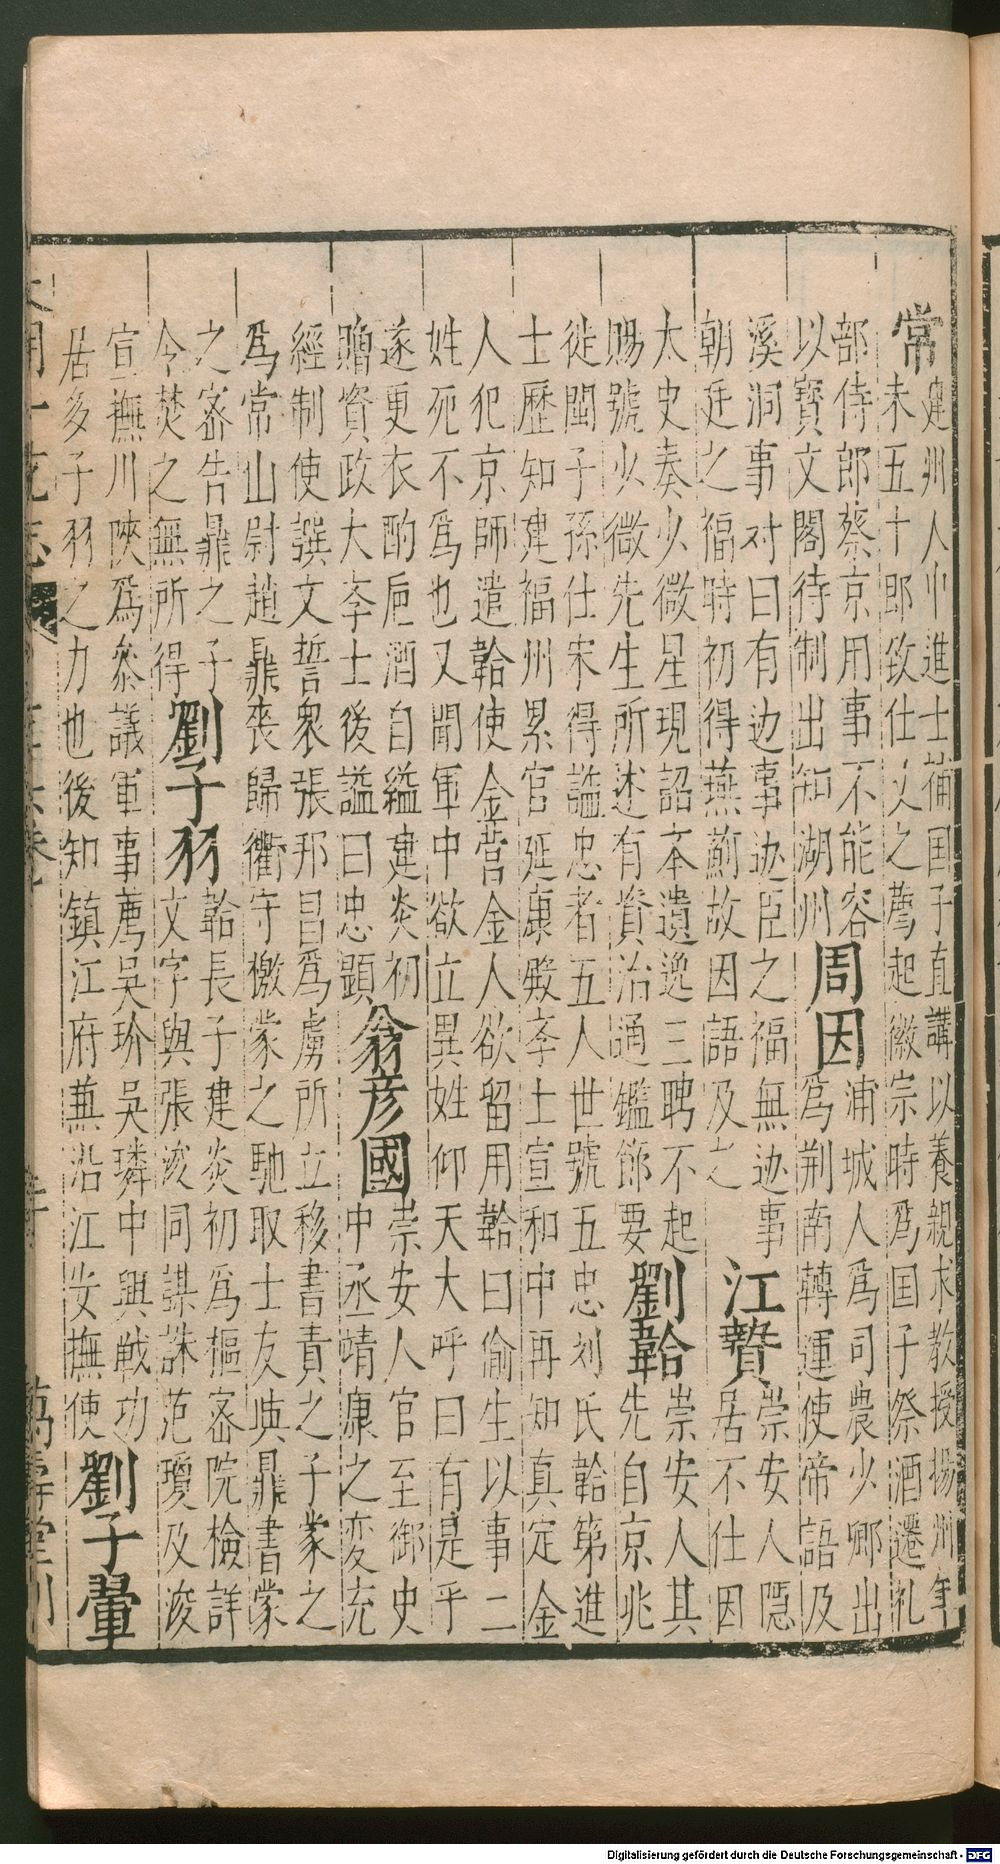 常建州人中進士補国子直講以養親求教授揚州年
未五十即致仕以之薦起徽宗時爲国子祭酒遷礼
部侍郎蔡京用事不能容 浦城人爲司農少卿出
以寶文閣待制出知湖州周因爲荆南轉運使帝語及
溪洞事对曰有边事边臣之福無边事
朝廷之福時初得燕薊故因語及之江贄崇安人隠
居不仕因
太史奏少微星現詔夲遺逸三聘不起
賜號少微先生所述有資治通鑑節要劉韐崇安人其
先自京兆
徙閩子孫仕宋得謚忠者五人世號五忠刘氏韐第進
士歷知建福州累官延康殿李士宣和中再知真定金
人犯京師遣韐使金营金人欲留用韐曰偷生以事二
姓死不爲也又聞軍中欲立異姓仰天大呼曰有是乎
遂更衣酌巵酒自縊建炎初
贈資政大李士後謚曰忠顯翁彦國崇安人官至御史
中丞靖康之变充
經制使譔文誓衆張邦昌爲虜所立移書責之子蒙之
爲常山尉趙鼎喪歸衢守檄蒙之馳取士友與鼎書蒙
之密告鼎之子
令焚之無所得劉子羽韐長子建炎初爲樞密院檢詳
文字與張浚同謀誅范瓊及浚
宣撫川陝爲叅議軍事薦吳玠吳璘中興戰功
居多子羽之力也後知鎮江府兼沿江安撫使劉子翬
大明一統志
萬壽堂刊
Digitalisierung gefördert durch die Deutsche Forschungsgemeinschaft - DFG